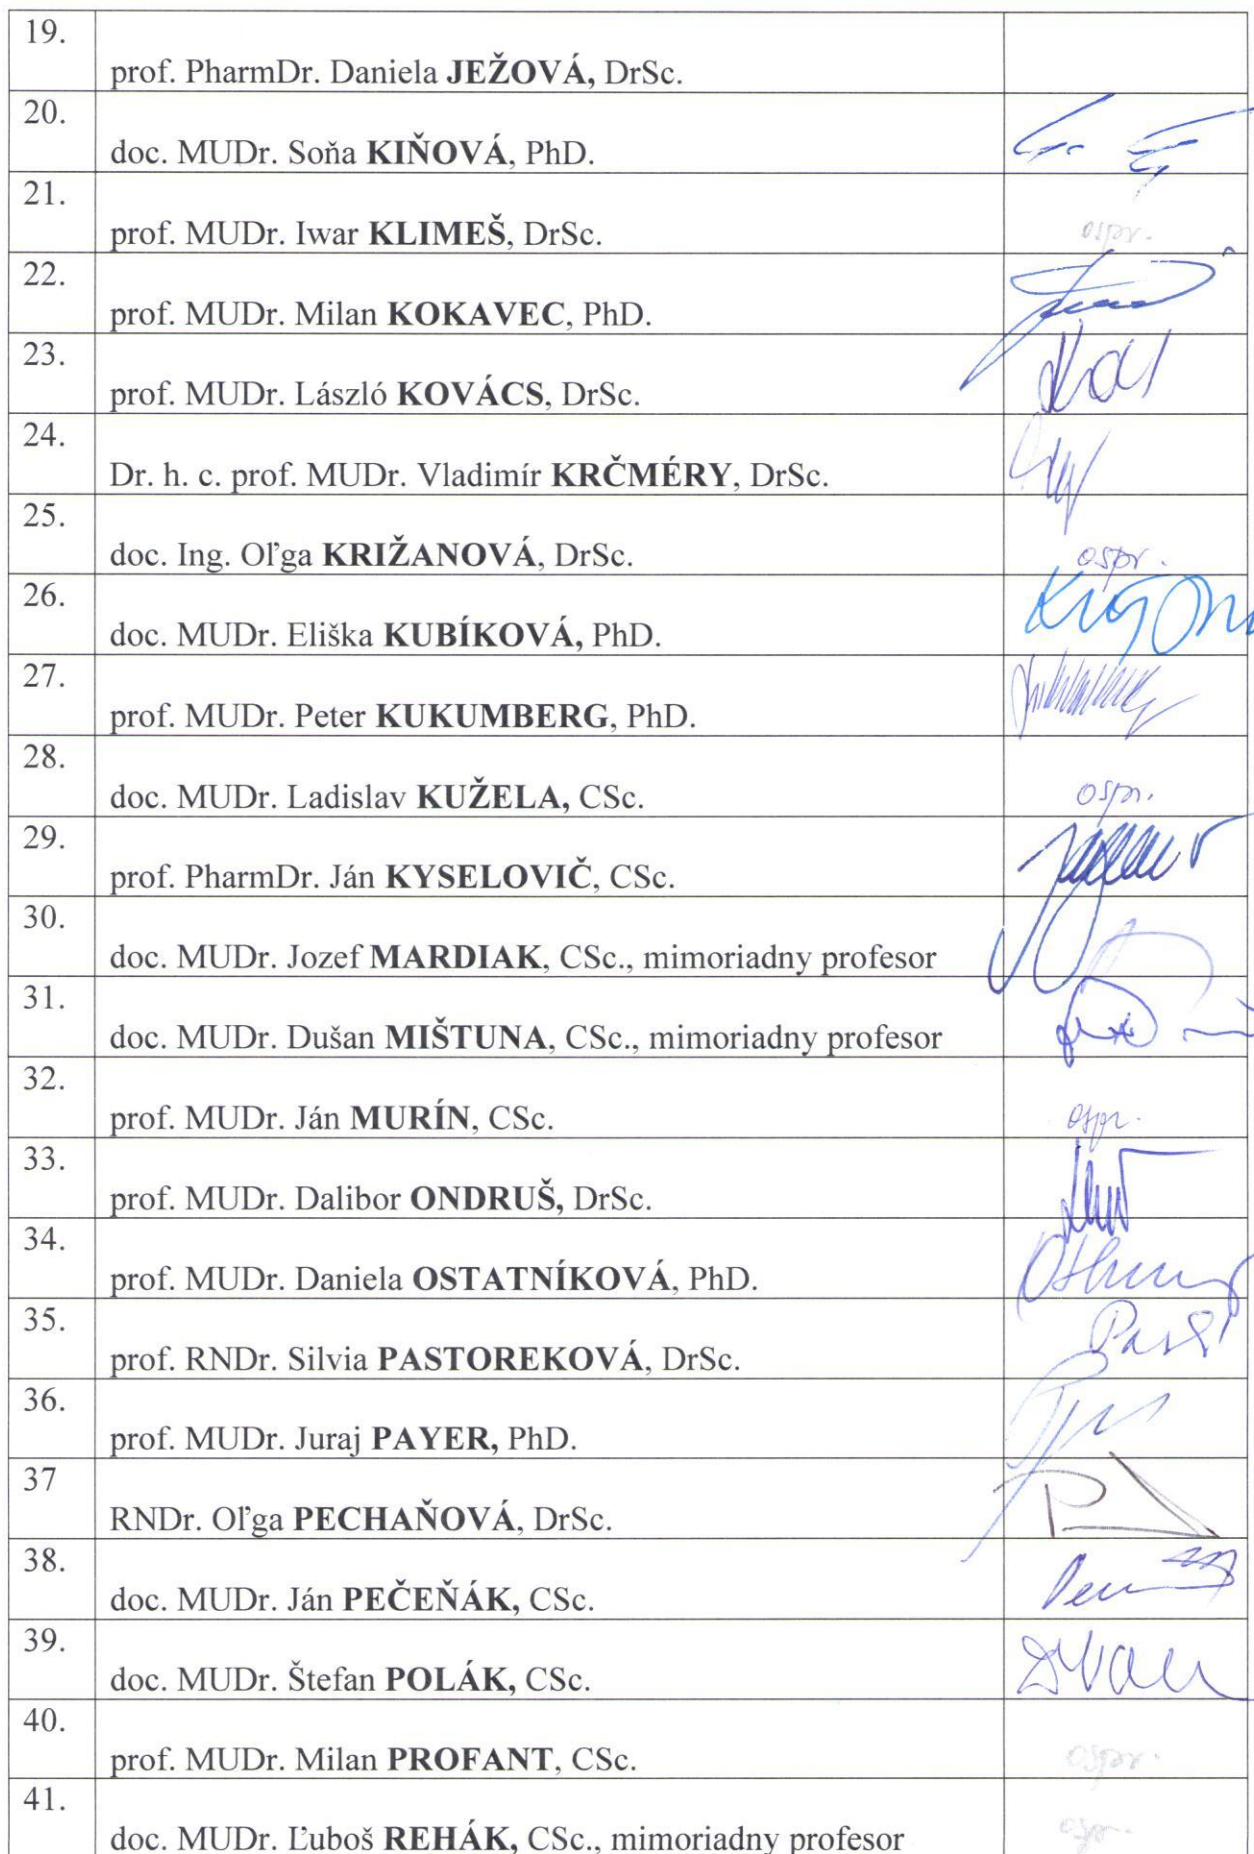 19.
prof. PharmDr. Daniela JEŽOVÁ, DrSc.
20.
doc. MUDr. Soňa KIŇOVÁ, PhD.
21.
prof. MUDr. Iwar KLIMEŠ, DrSc. ospr.
22.
prof. MUDr. Milan KOKAVEC, PhD.
23.
prof. MUDr. László KOVÁCS, DrSc.
24.
Dr. h. c. prof. MUDr. Vladimír KRČMÉRY, DrSc.
25.
doc. Ing. Oľga KRIŽANOVÁ, DrSc. ospr.
26.
doc. MUDr. Eliška KUBÍKOVÁ, PhD.
27.
prof. MUDr. Peter KUKUMBERG, PhD.
28.
doc. MUDr. Ladislav KUŽELA, CSc. ospr.
29.
prof. PharmDr. Ján KYSELOVIČ, CSc.
30.
doc. MUDr. Jozef MARDIAK, CSc., mimoriadny profesor
31.
doc. MUDr. Dušan MIŠTUNA, CSc., mimoriadny profesor
32.
prof. MUDr. Ján MURÍN, CSc. ospr.
33.
prof. MUDr. Dalibor ONDRUŠ, DrSc.
34.
prof. MUDr. Daniela OSTATNÍKOVÁ, PhD.
35.
prof. RNDr. Silvia PASTOREKOVÁ, DrSc.
36.
prof. MUDr. Juraj PAYER, PhD.
37
RNDr. Oľga PECHAŇOVÁ, DrSc.
38.
doc. MUDr. Ján PEČEŇÁK, CSc.
39.
doc. MUDr. Štefan POLÁK, CSc.
40.
prof. MUDr. Milan PROFANT, CSc. ospr.
41.
doc. MUDr. Ľuboš REHÁK, CSc., mimoriadny profesor ospr.